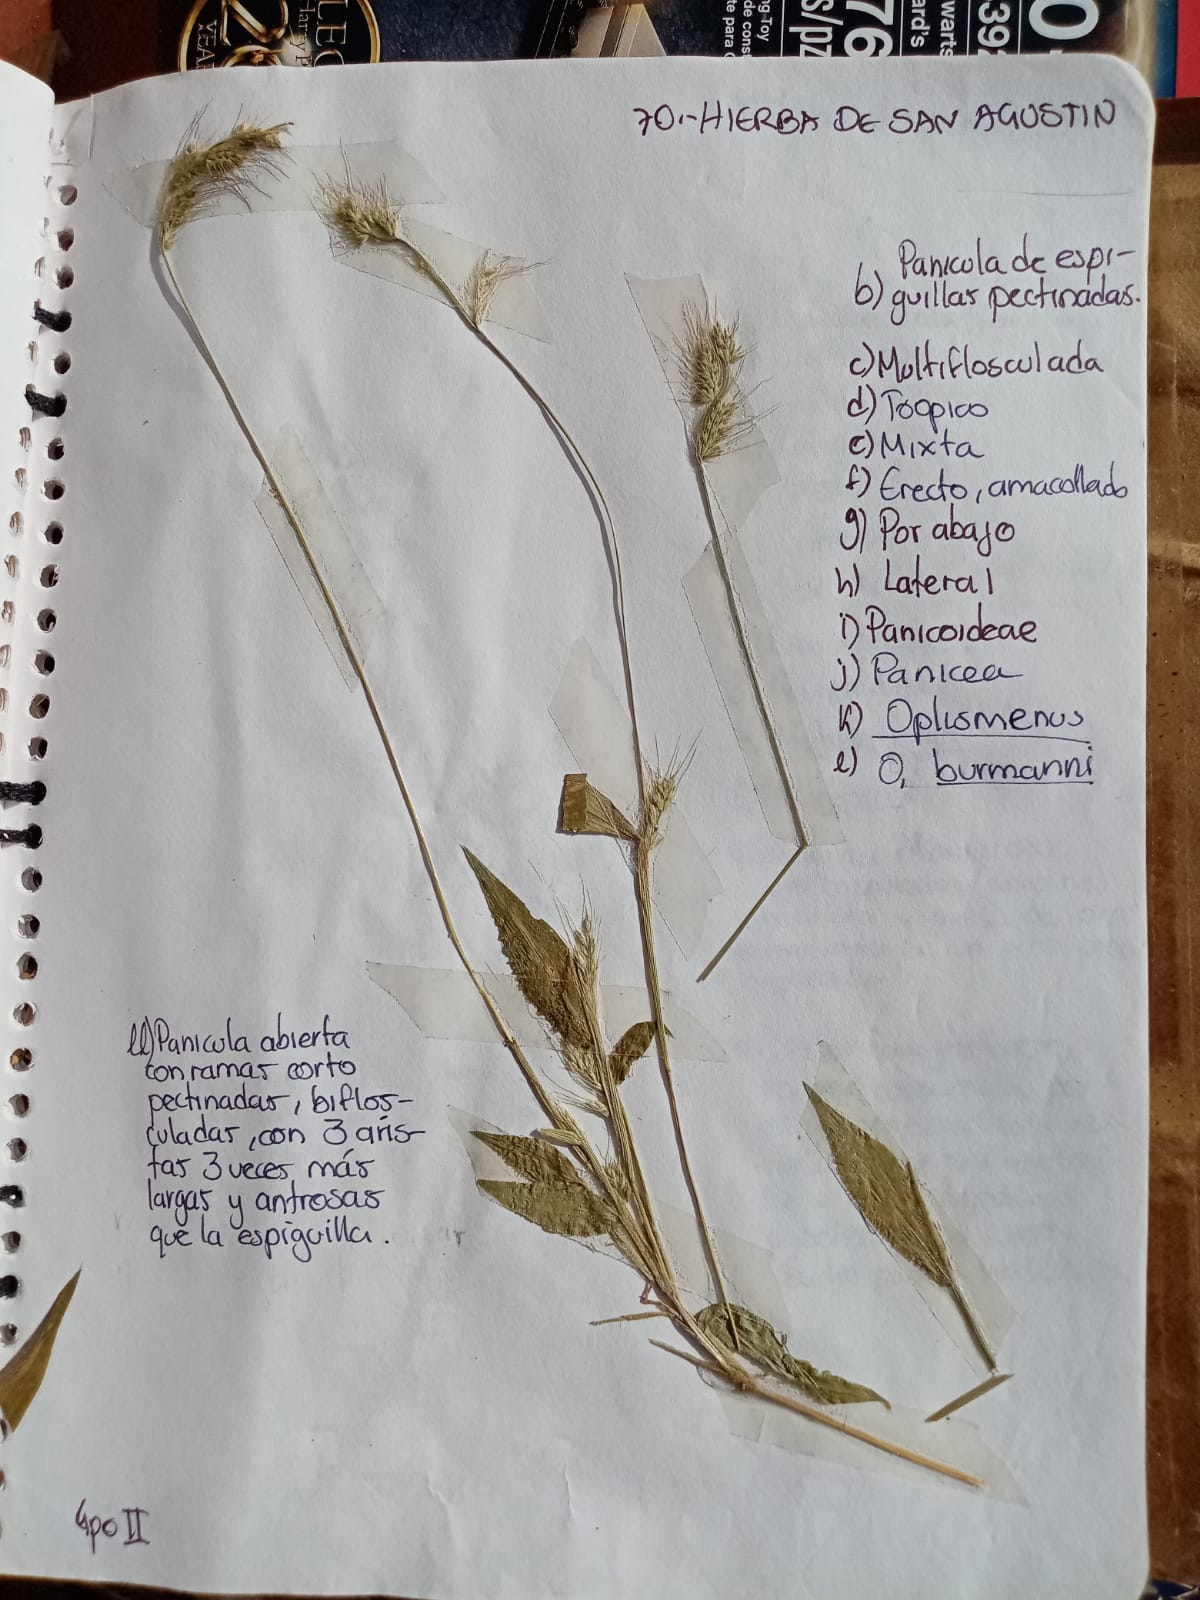 70.-HIERBA DE SAN AGUSTIN
Panicula de espi-
b) guillas pectinadas.
c) Multiflosculada
d) Toopico
e) Mixta
f) Erecto, amacollado
g) Por abajo
h) Lateral
i) Panicoideae
j) Panicea
k) Oplismenus
l) O, burmanni
ll) Panicula abierta
con ramas corto
pectinadas, biflos-
culadas, con 3 aris-
tas 3 veces más
largas y antrosas
que la espiguilla.
Gpo II